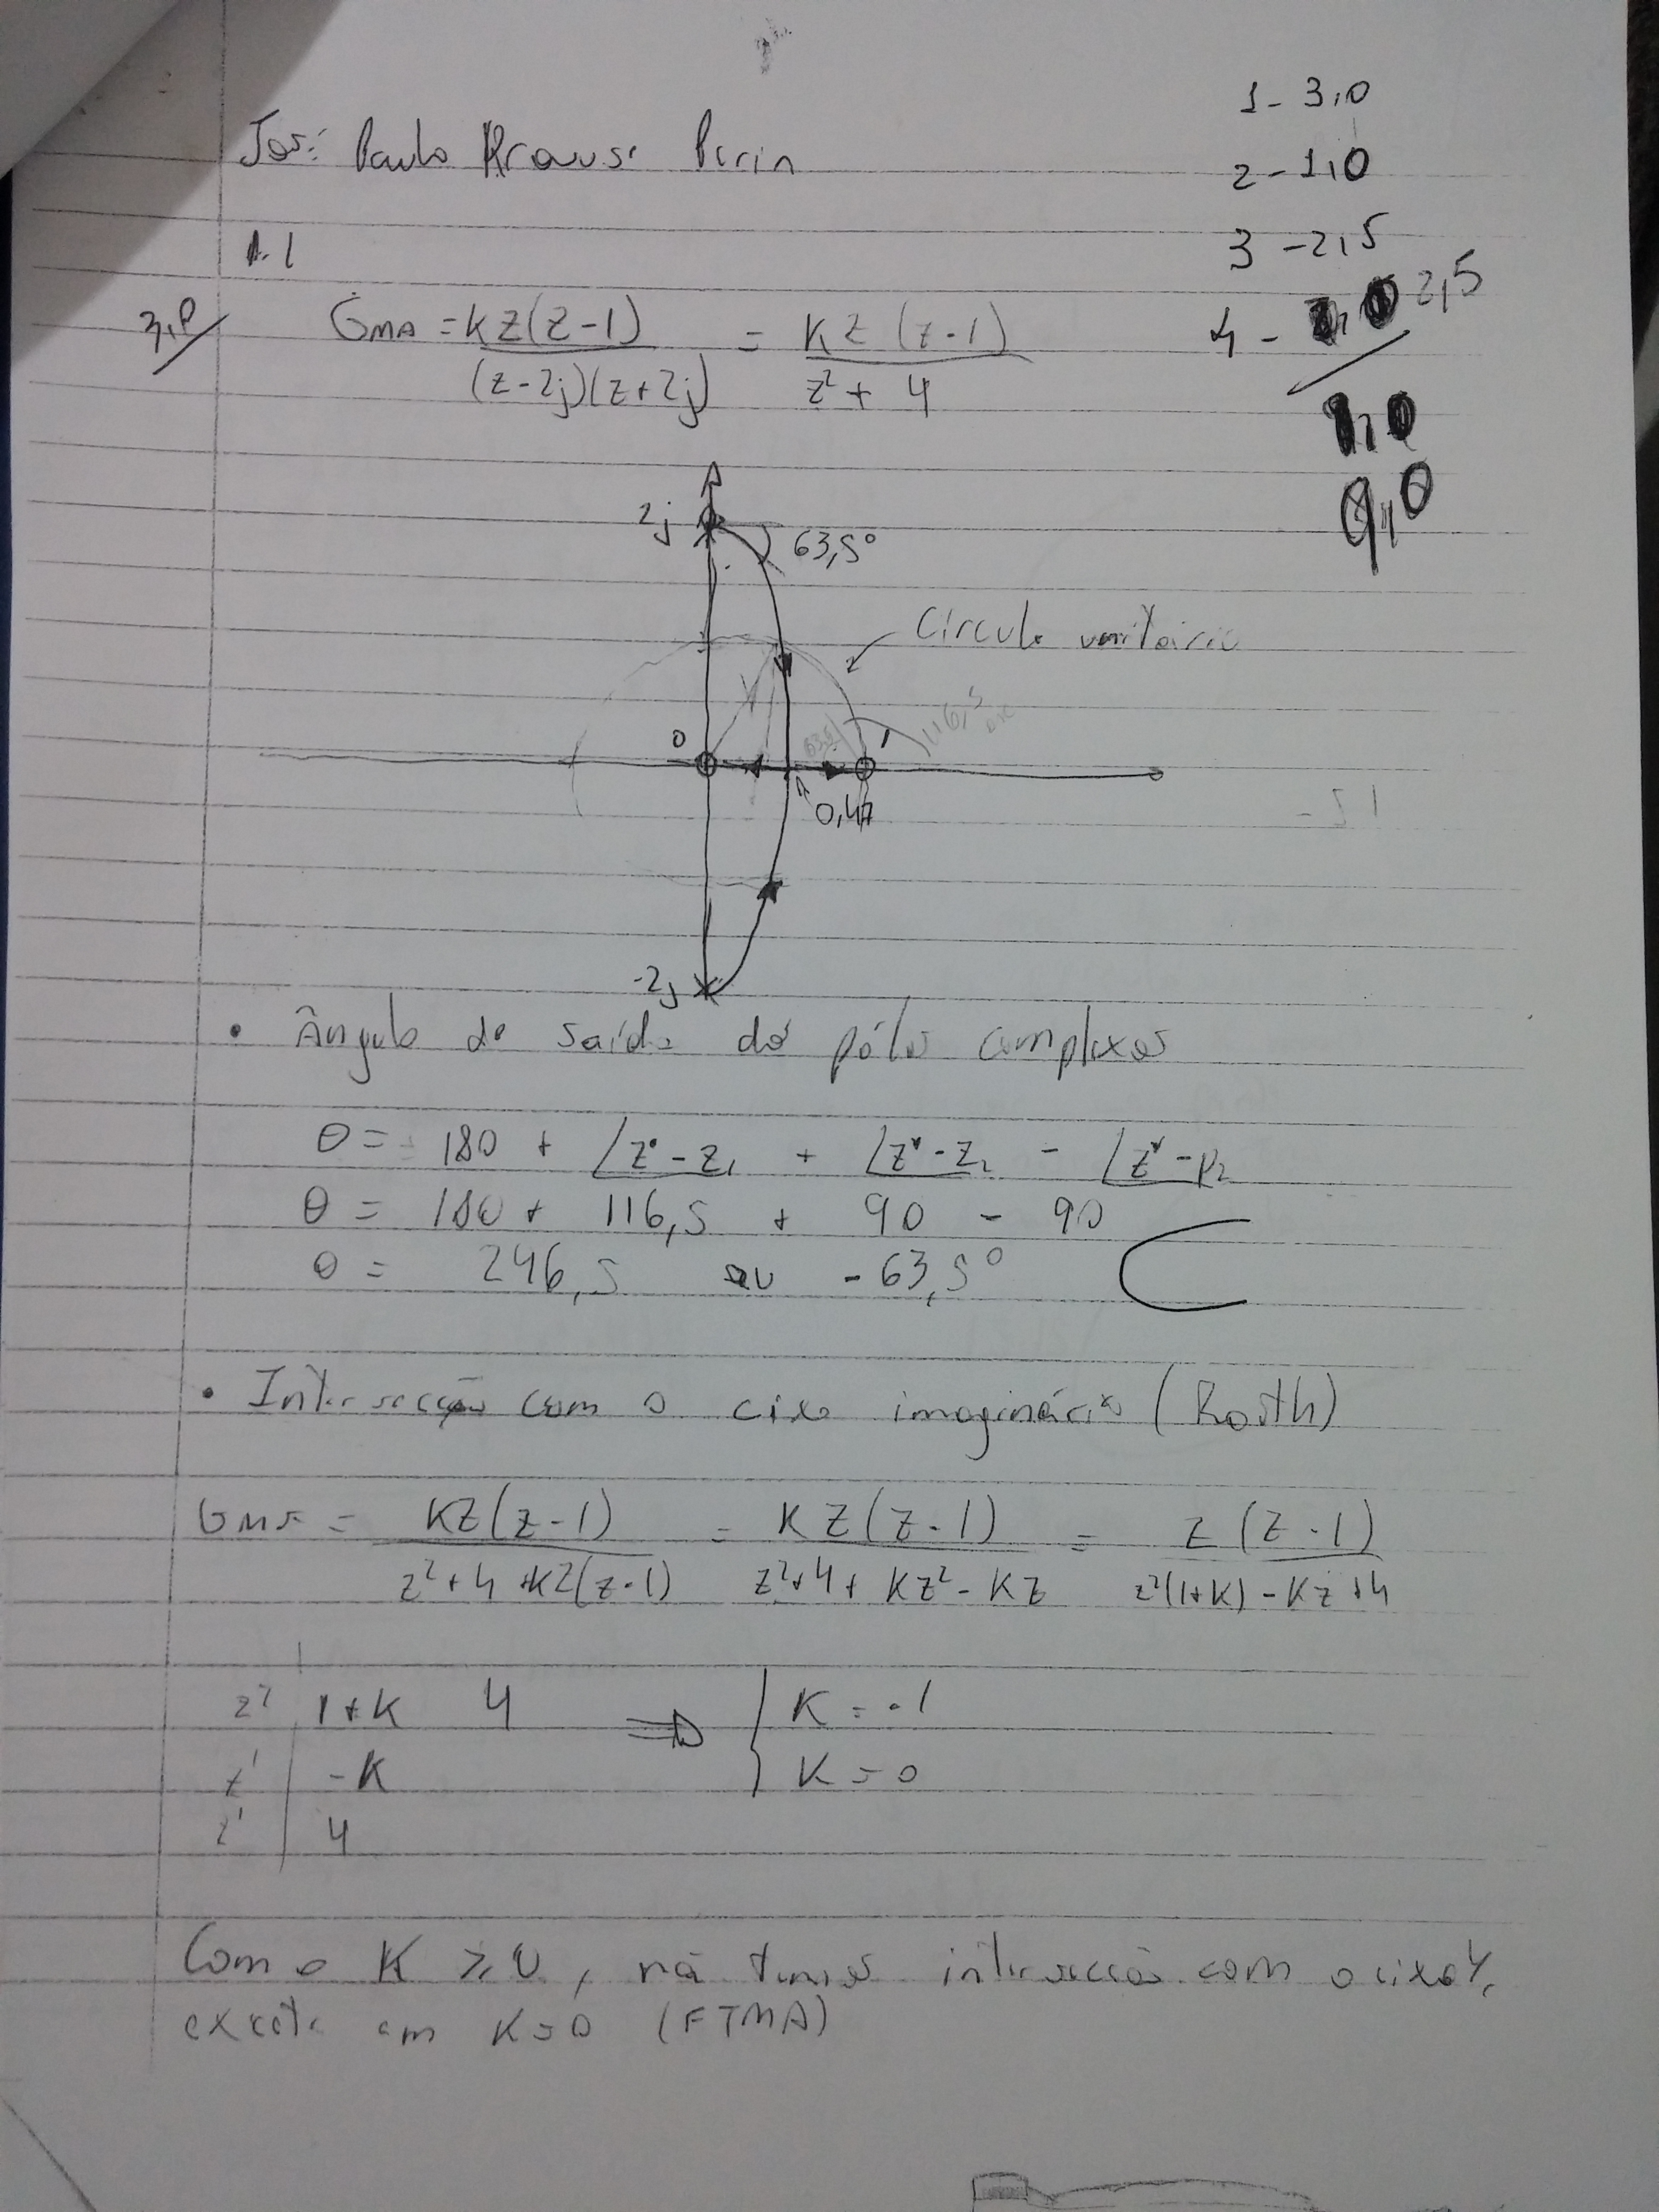 José Paulo Krause Perin
1- 3,0
2- 1,0
3 -2,5
4 - 2,5
9,0
1.1
3,0
GMA = KZ(Z-1) / (z-2j)(z+2j) = KZ(z-1) / z²+4
2j
63,5°
Círculo unitário
116,5
63,5
0
1
0,47
-2j
• Ângulo de saída dos pólos complexos
θ = 180 + ∠z*-z₁ + ∠z*-z₂ - ∠z*-p₂
θ = 180 + 116,5 + 90 - 90
θ = 246,5 ou -63,5°
• Intersecção com o eixo imaginário (Routh)
GMF = KZ(z-1) / z²+4+KZ(z-1) = KZ(z-1) / z²+4+Kz²-Kz = Z(Z-1) / z²(1+K)-Kz+4
z² 1+K 4 ⇒ K=-1
z¹ -K K=0
z¹ 4
Como K ≥ 0, não temos intersecção com o eixo Y,
exceto em K=0 (FTMA)